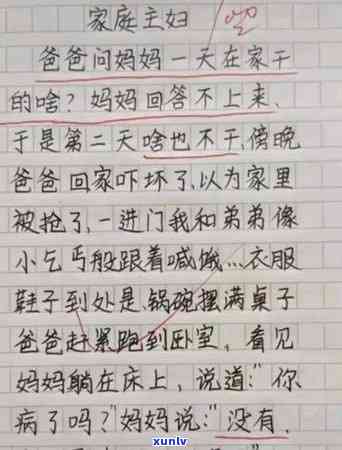 家庭主妇
爸爸问妈妈一天在家干
的啥？妈妈回答不上来、
于是第二天啥也不干，傍晚
爸爸回家吓坏了，以为家里
被抢了，一进门我和弟弟像
小乞丐般跟着喊饿…衣服
鞋子到处是，锅碗摆满桌子
爸爸赶紧跑到卧室，看见
妈妈躺在床上，说道："你
病了吗？"妈妈说："没有，
xunlv